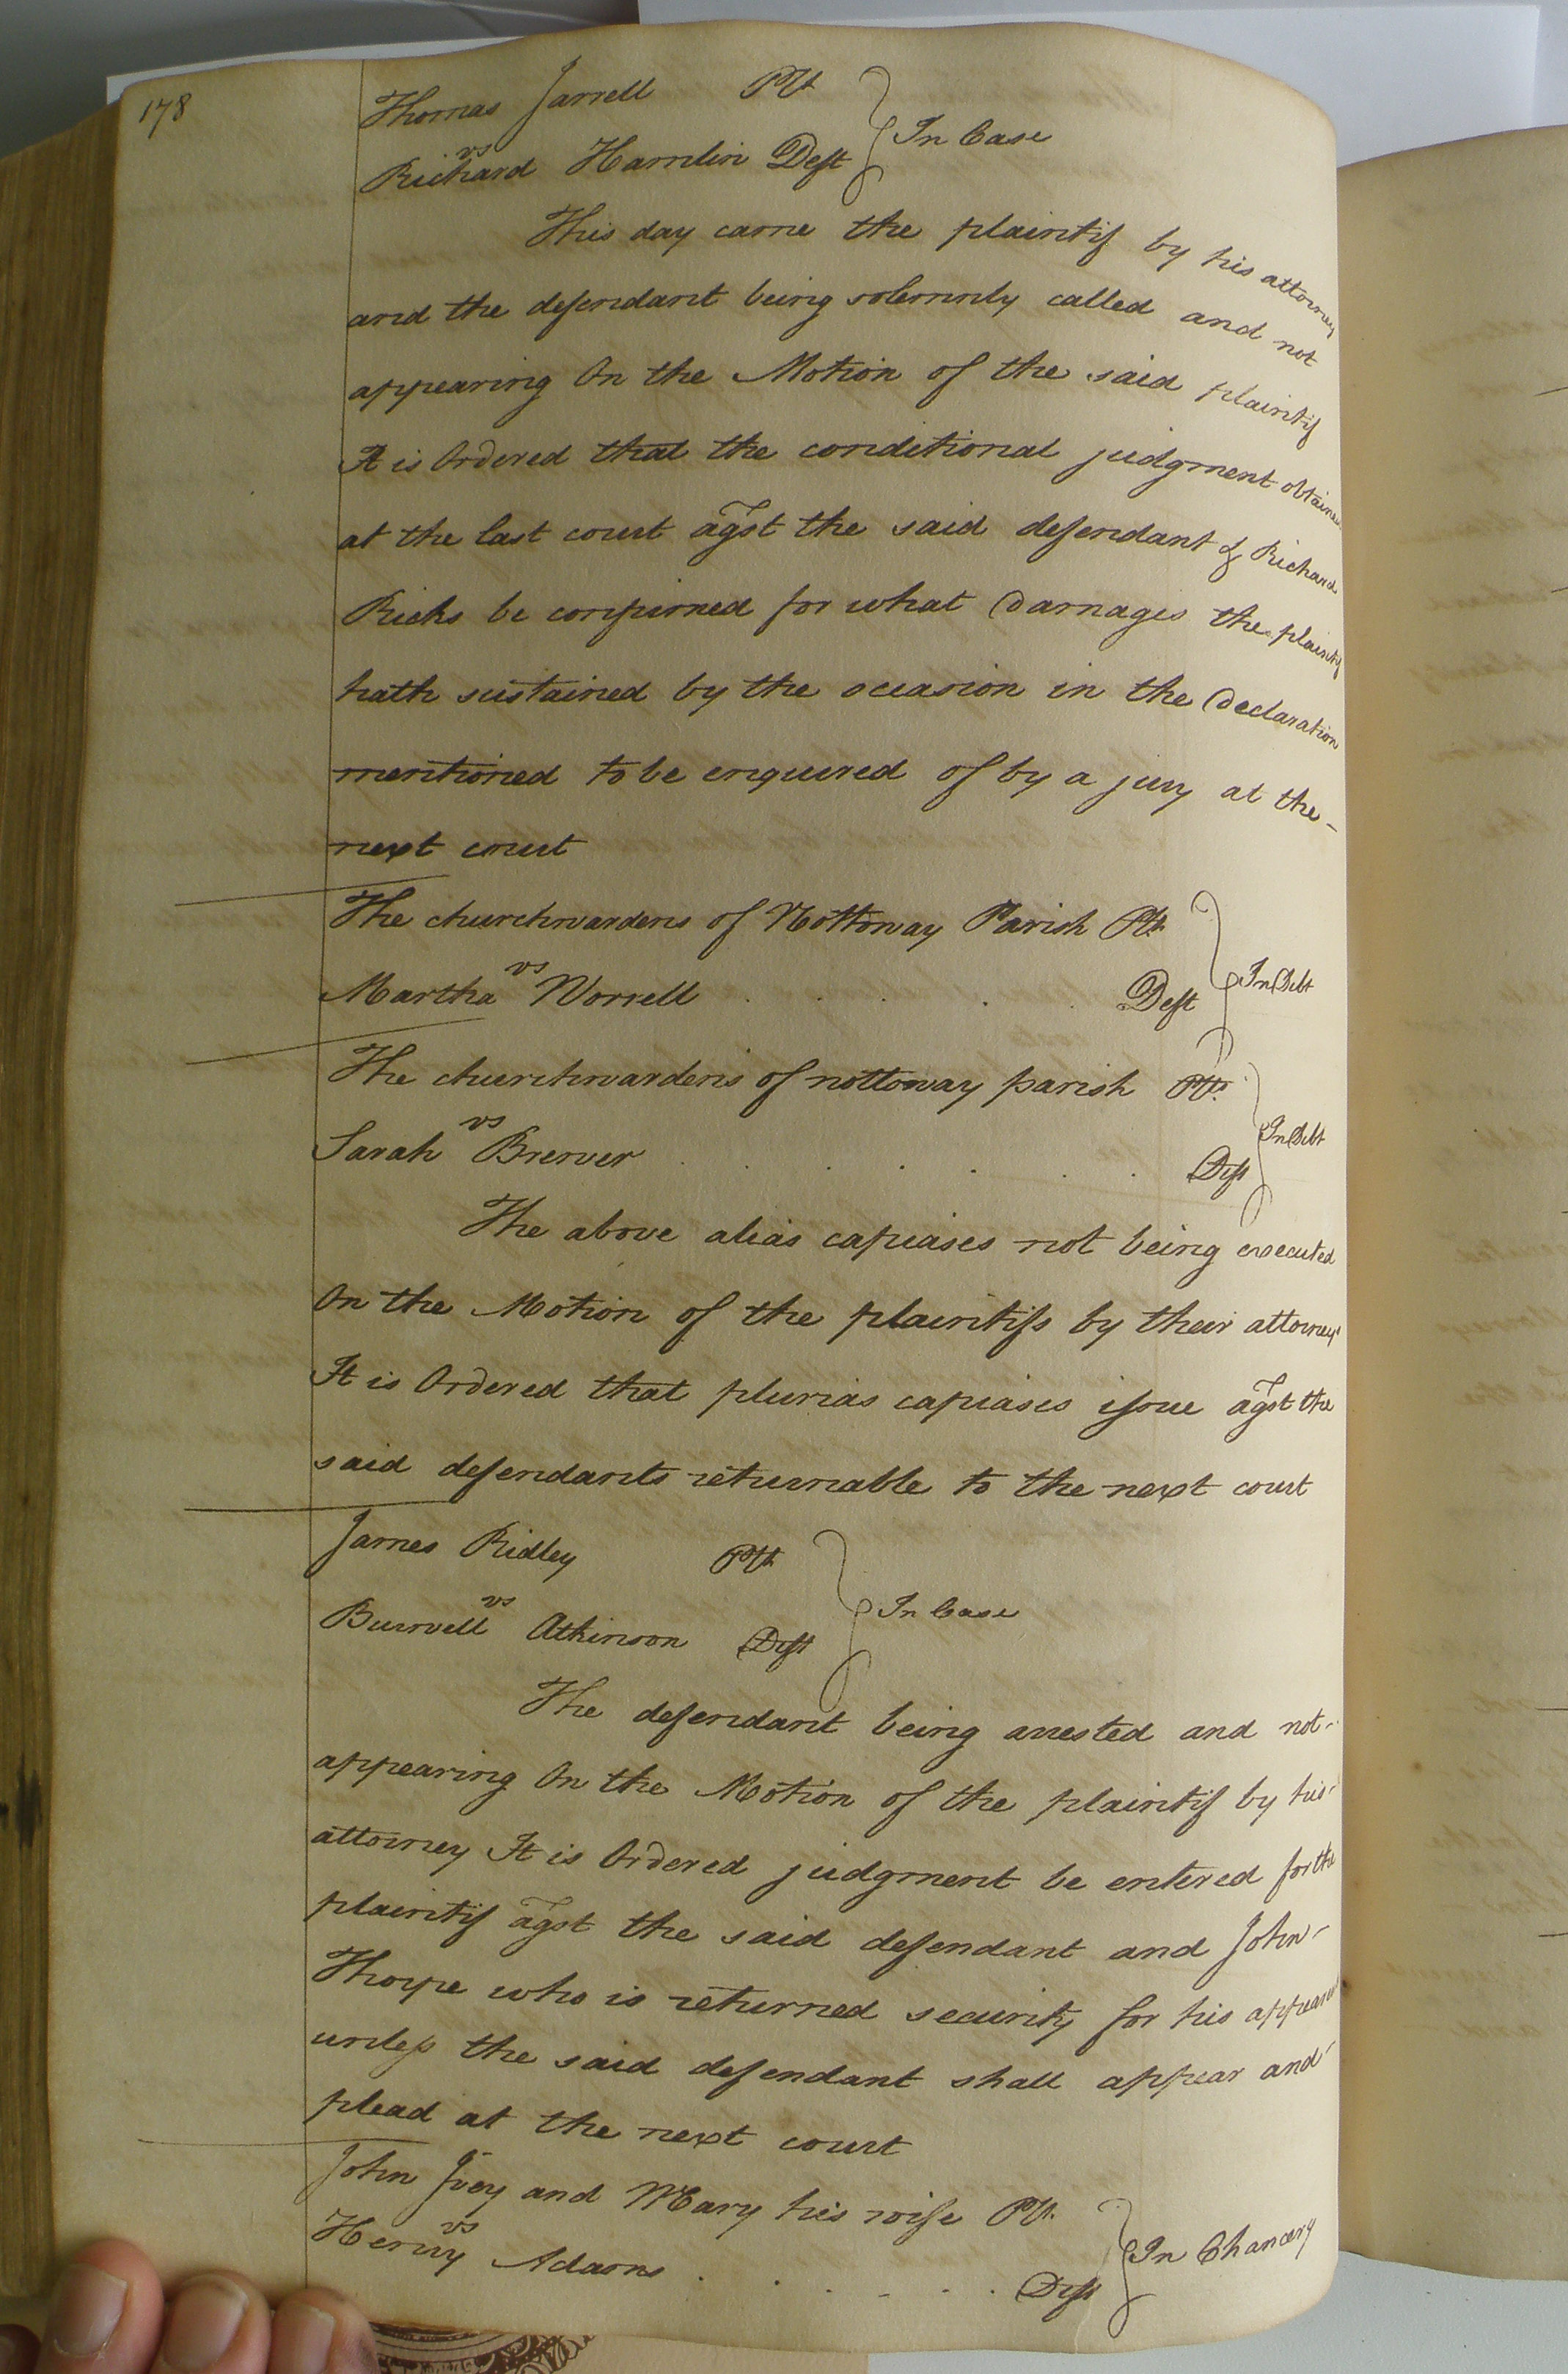 178
Thomas Jarrell Plt
vs
Richard Hamlin Deft
In Case
This day came the plaintif by his attorney
and the defendant being solemnly called and not
appearing On the Motion of the said plaintif
It is Ordered that the conditional judgment obtained
at the last court agst the said defendant & Richard
Ricks be confirmed for what Damages the plaintif
hath sustained by the occasion in the Declaration
mentioned to be enquired of by a jury at the
next court
The churchwardens of Nottoway Parish Plt
vs
Martha Worrell . . . . Deft
In Debt
The churchwardens of nottoway parish Plts
vs
Sarah Brewer . . . . . . Deft
In Debt
The above alias capiases not being executed
On the Motion of the plaintifs by their attorney
It is Ordered that plurias capiases issue agst the
said defendants returnable to the next court
James Ridley Plt
vs
Burwell Atkinson Deft
In Case
The defendant being arrested and not
appearing On the Motion of the plaintif by his
attorney It is Ordered judgment be entered for the
plaintif agst the said defendant and John
Thorpe who is returned security for his appearance
unless the said defendant shall appear and
plead at the next court
John Ivey and Mary his wife Plt
vs
Henry Adams . . . . . . Deft
In Chancery